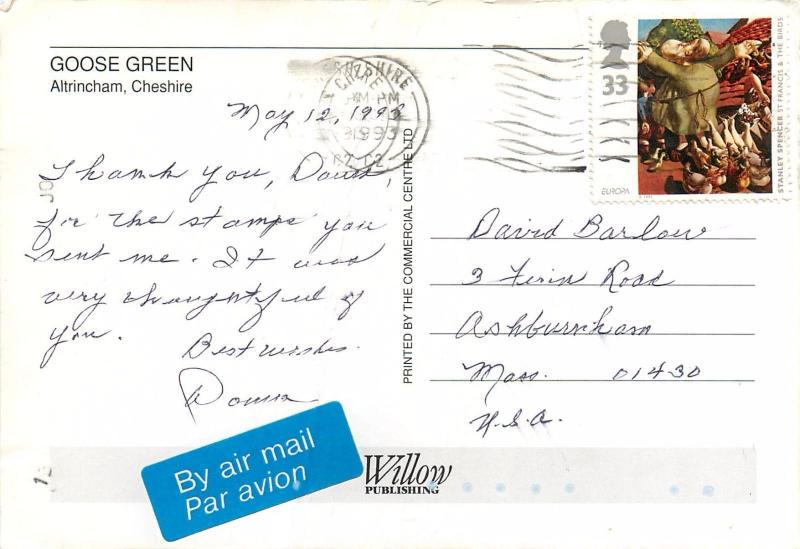 GOOSE GREEN
Altrincham, Cheshire
May 12, 1993
Thank you,
for the stamps you
sent me. It was
very thoughtful of
you.
Best wishes.
By air mail
Par avion
PRINTED BY THE COMMERCIAL CENTRE LTD
CHESHIRE
1993
33
EUROPA
STANLEY SPENCER ST FRANCIS & THE BIRDS
David Barlow
3 Road
Ashburnham
Mass. 01430
U.S.A.
Willow
PUBLISHING